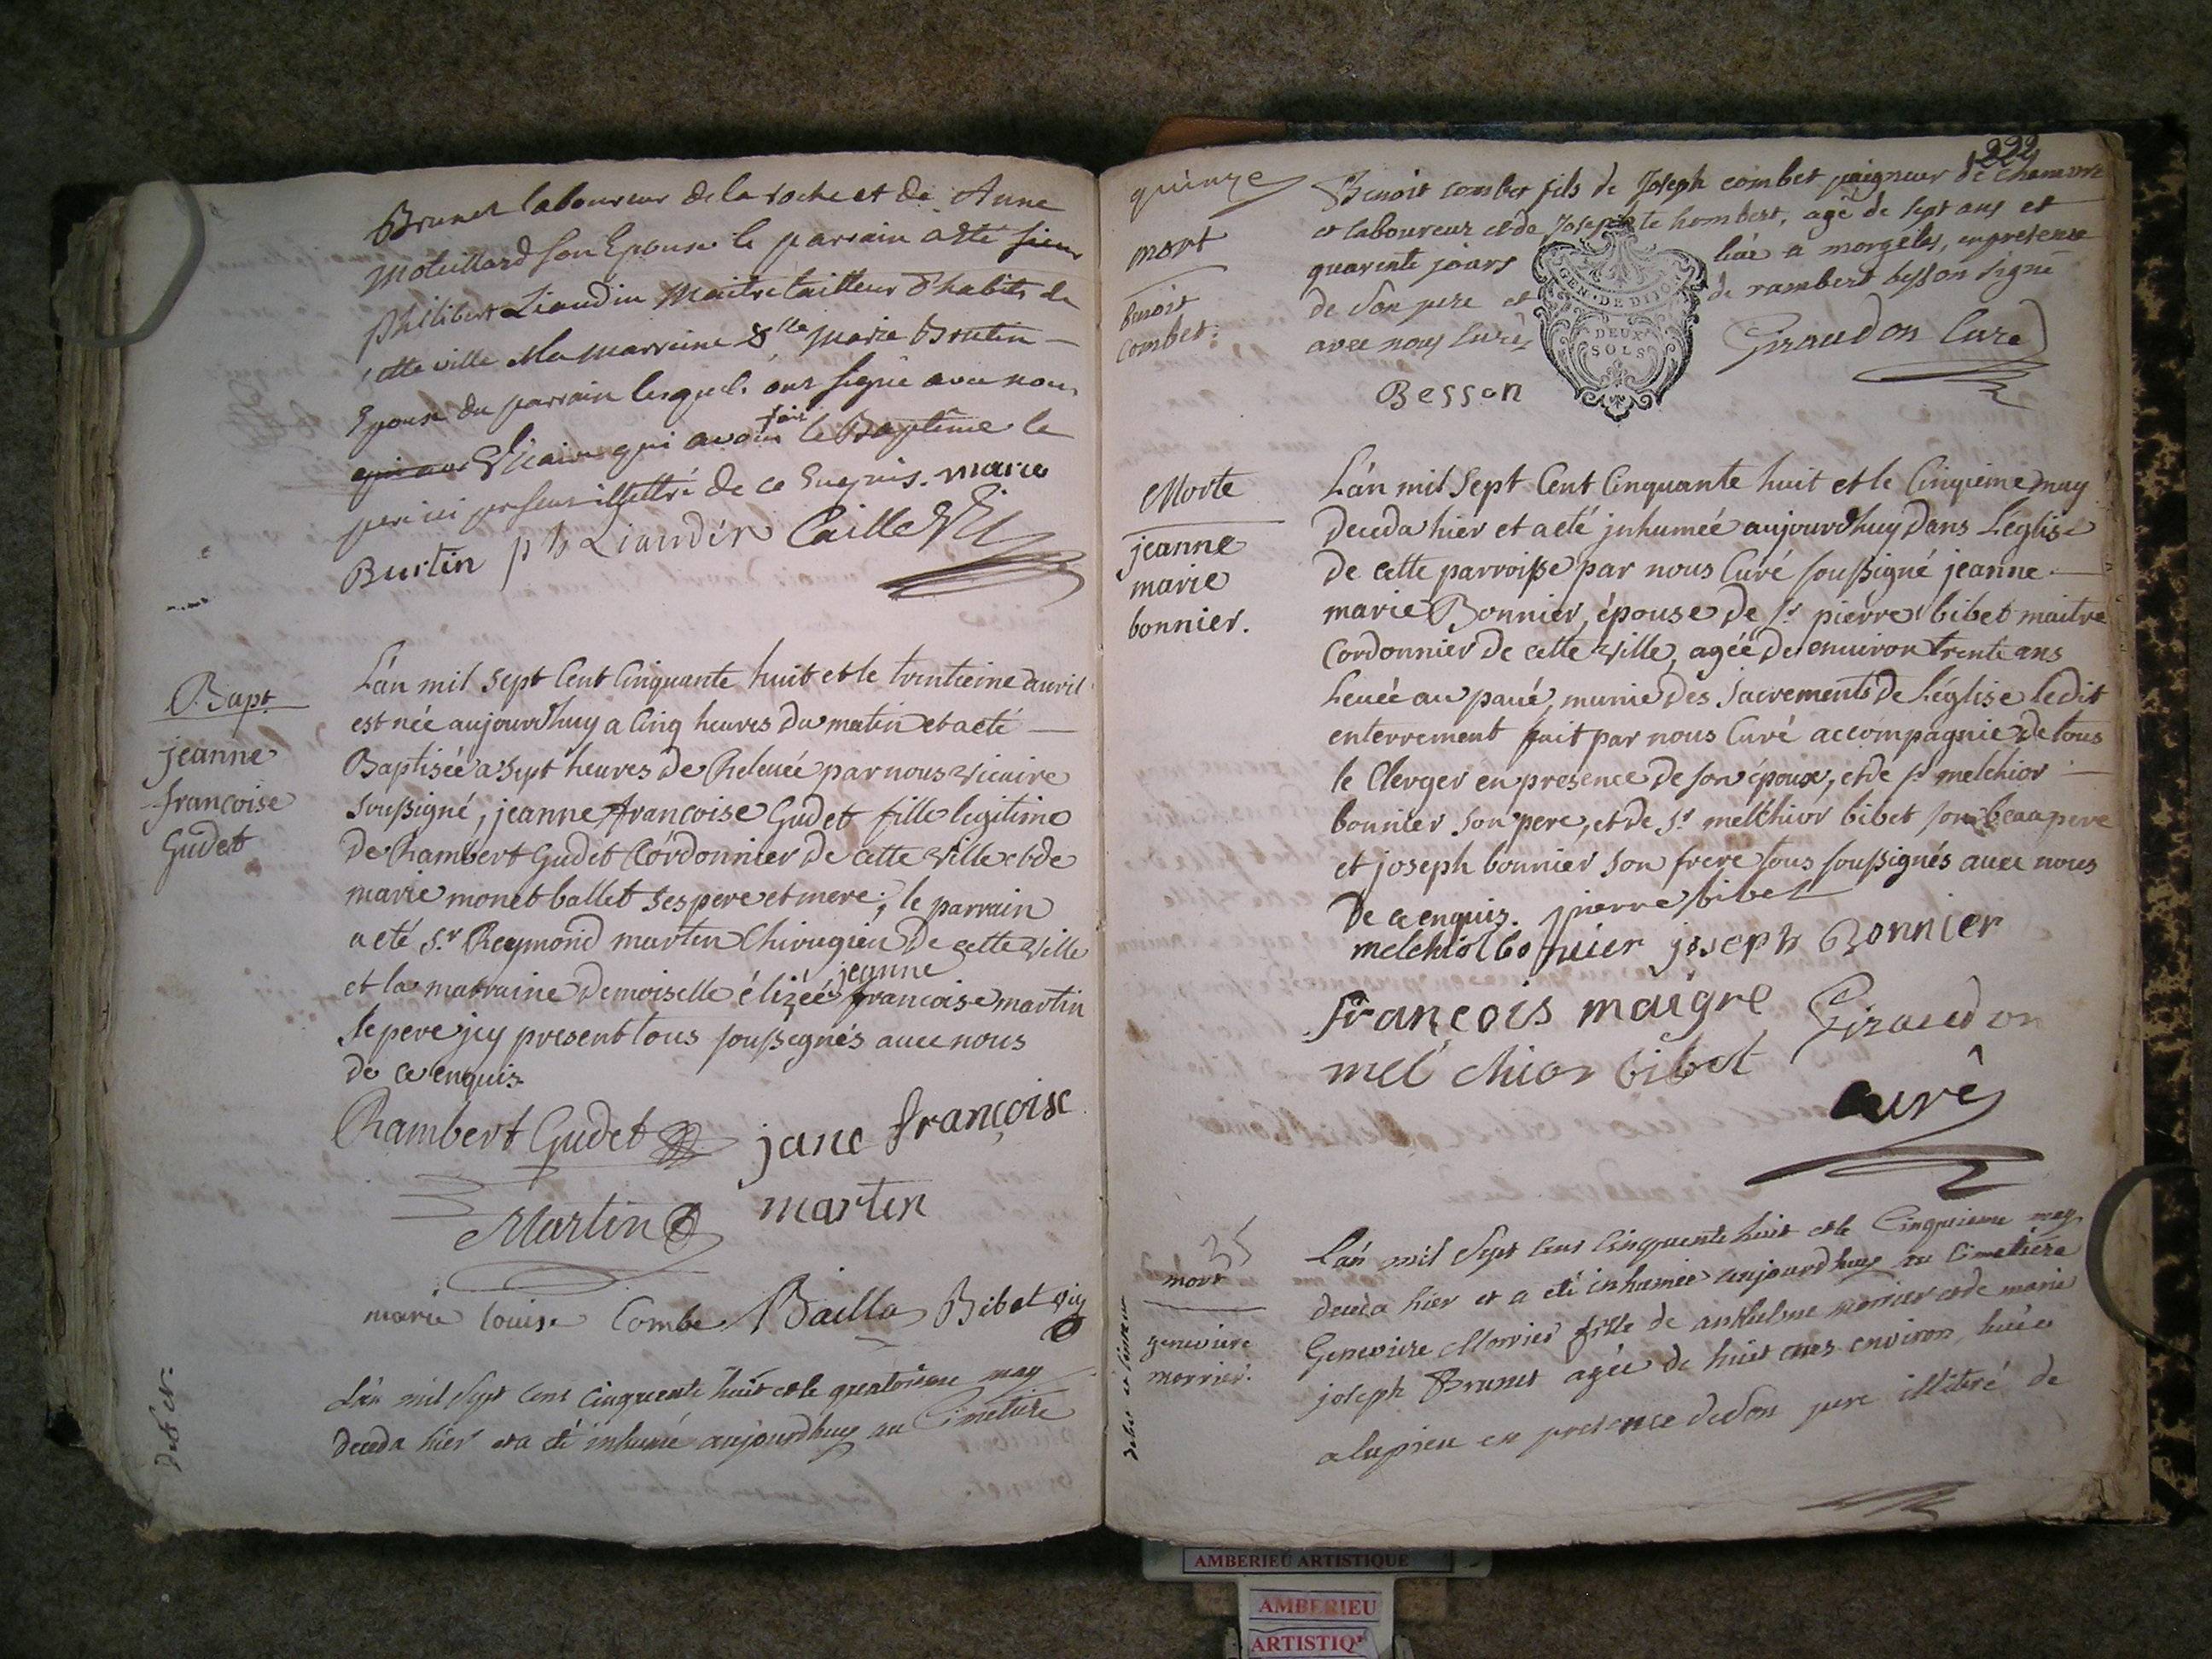 Brunet laboureur de la roche et de Anne
Moteillard son Epouse le parrain a eté sieur
philibert Liaudin Maitre tailleur d'habits de
cette ville & la marraine dlle marie Brutin
Epouse du parrain lesquels ont signé avec nous
qui avoit fait le Baptême le
pere ici present illettré de ce Enquis. marie
Burtin ph Liaudin Caille
Bapt
jeanne
francoise
Gudet
L'an mil sept Cent Cinquante huit et le trentieme avril
est née aujourdhuy a Cinq heures du matin et a eté
Baptisée a sept heures de Relevée par nous vicaire
soussigné, jeanne francoise Gudet fille legitime
de Rambert Gudet Cordonnier de cette ville et de
marie monet ballet ses pere et mere; le parrain
a eté Sr Reymond marten Chirugien de cette ville
et la marraine demoiselle élizée jeanne francoise martin
le pere jcy present tous soussegnés avec nous
de ce enquis.
Rambert Gudet jane françoise
Martin martin
marie louise Combe Bailla Bibet vic
L'an mil sept cens cinquente huit et le quatorsieme may
deceda hier et a eté inhumé aujourdhuy au Cimetiere
222
quinze
mort
benoit
combet.
Benoit combet fils de Joseph combet peigneur de chanvre
et laboureur et de Josephte hombert, agé de sept ans et
quarente jours livée a morgelas, en presence
de son pere et de rambert besson signé
avec nous Curé,
GEN. DE DIJON
DEUX
SOLS
Giraudon Curé
Besson
Morte
jeanne
marie
bonnier.
L'an mil Sept Cent Cinquante huit et le Cinquieme may
deceda hier et a eté jnhumeé aujourdhuy dans L'eglise
de cette parroisse par nous Curé soussigné jeanne
marie Bonnier, épouse de Sr pierre bibet maitre
Cordonnier de cette ville, agée de environ trente ans
Levée au pavé, munie des Sacrements de L'église ledit
enterrement fait par nous Curé accompagnie de tous
le Clerger en presence de son époux, et de Sr melchior
bonnier son pere, et de Sr melchior bibet son beau pere
et joseph bonnier son frere tous soussignés avec nous
de ce enquis. pierre bibet
melchiol bonnier joseph Bonnier
françois maigre Giraudon
melchior bibet curé
mort
genevieve
morrier.
L'an mil Sept Cens Cinquente huit et le Cinquieme may
deceda hier et a eté inhumée aujourdhuy au Cimetiere
Genevieve Morrier fille de anthelme morrier et de marie
joseph Brunet agée de huit ans environ, livée
en presence de son pere illiteré de
AMBERIEU ARTISTIQUE
AMBERIEU
ARTISTIQ